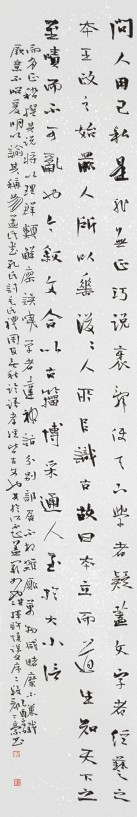 問人用己私是非無正巧說衺辭使天下學者疑蓋文字者經藝之
本王政之始前人所以垂後後人所以識古故曰本立而道生知天下之
至嘖而不可亂也今敘篆文合以古籀博采通人至於大小信
而有證稽譔其說將以理群類解謬誤曉學者達神恉分別部居不相雜廁萬物咸睹靡不兼載
厥誼不昭爰明以諭其稱易孟氏書孔氏詩毛氏禮周官春秋左氏論語孝經皆古文也其於所不知蓋闕如也